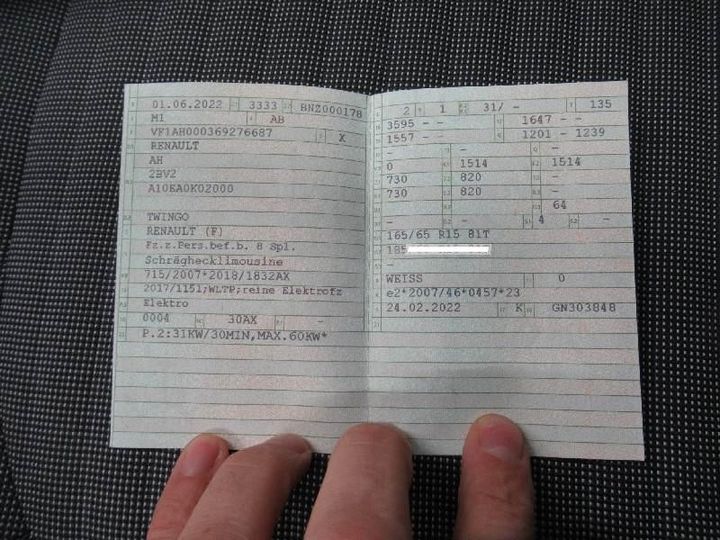 01.06.2022 3333 BNZ000178
M1 AB
VF1AH000369276687 X
RENAULT
AH
2BV2
A10EA0K02000
TWINGO
RENAULT (F)
Fz.z.Pers.bef.b. 8 Spl.
Schräghecklimousine
715/2007*2018/1832AX
2017/1151;WLTP;reine Elektrofz
Elektro
0004 30AX -
P.2:31KW/30MIN,MAX.60KW*
2 1 31/ - 135
3595 - - 1647 - -
1557 - - 1201 - 1239
- - -
0 1514 1514
730 820 -
730 820 -
- 64
- - 4 -
165/65 R15 81T
185
-
WEISS 0
e2*2007/46*0457*23
24.02.2022 K GN303848